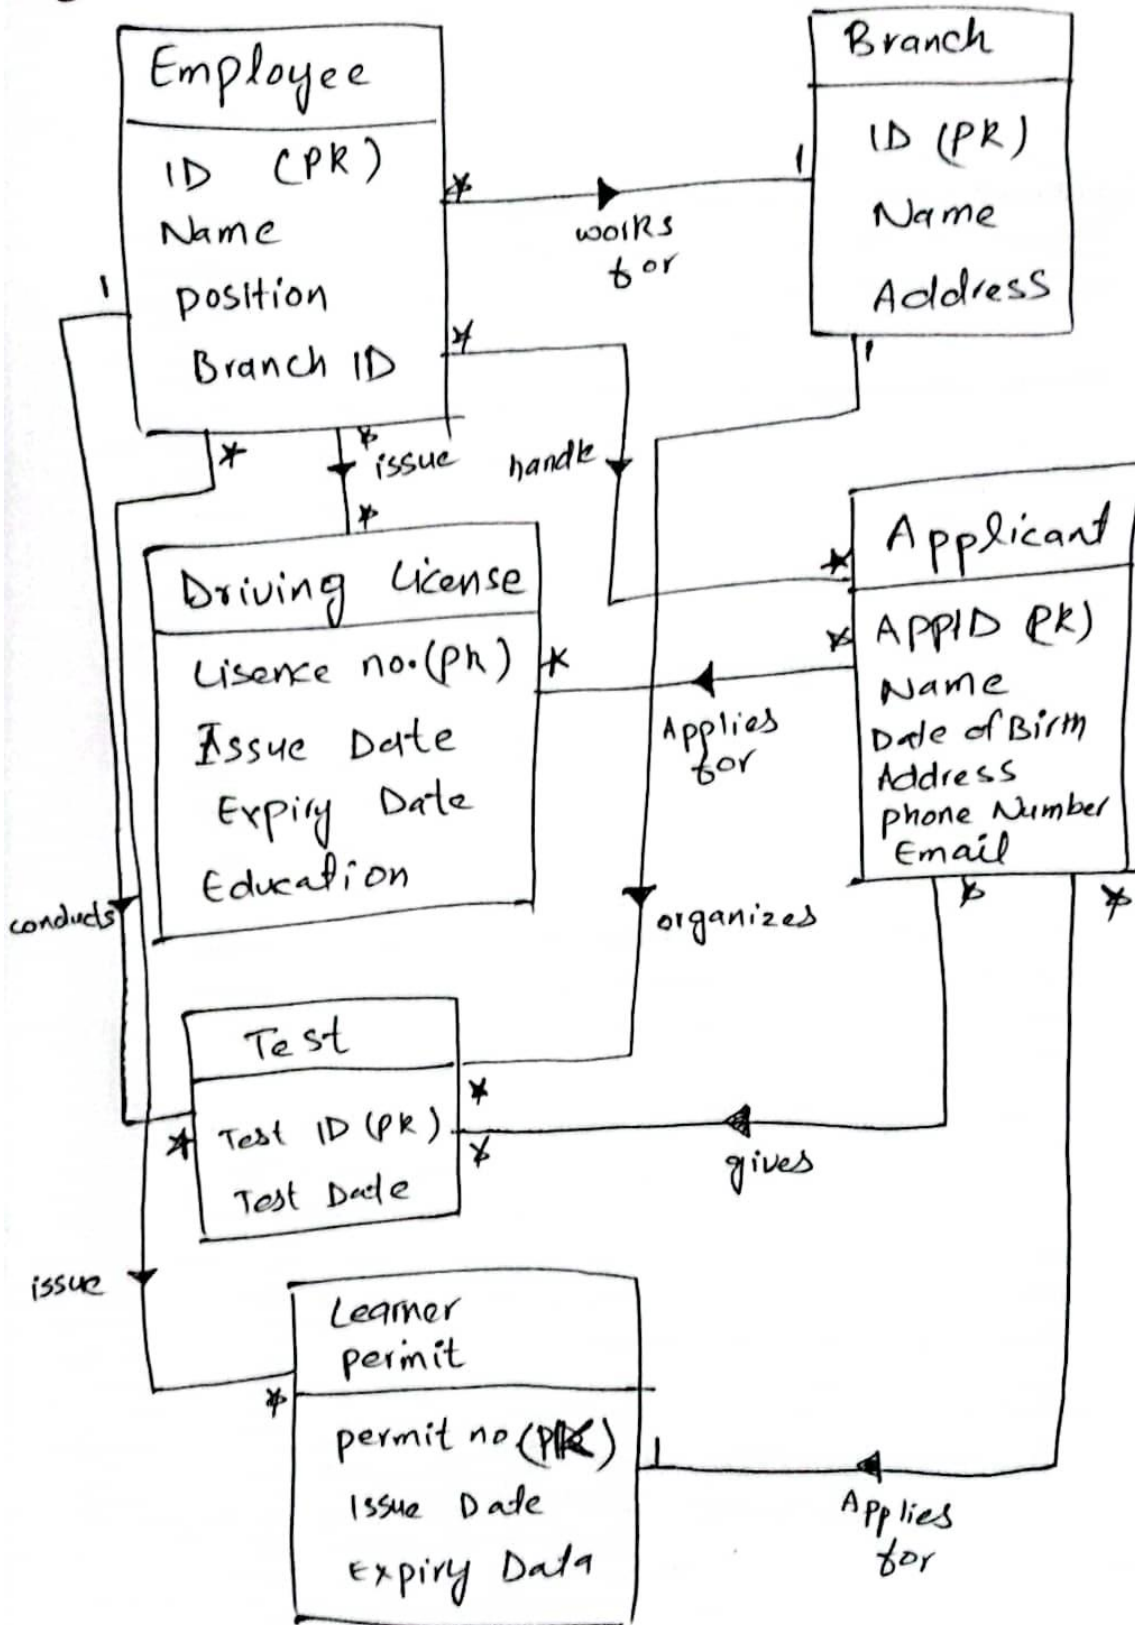 Employee
ID (PK)
Name
position
Branch ID
Branch
ID (PK)
Name
Address
*
works
for
1
1
*
handle
1
*
*
issue
*
Driving License
Lisence no. (PK)
Issue Date
Expiry Date
Education
*
Applies
for
*
*
Applicant
APPID (PK)
Name
Date of Birth
Address
phone Number
Email
*
*
conducts
organizes
Test
Test ID (PK)
Test Date
*
*
*
gives
issue
Learner
permit
permit no (PK)
Issue Date
Expiry Data
*
1
Applies
for